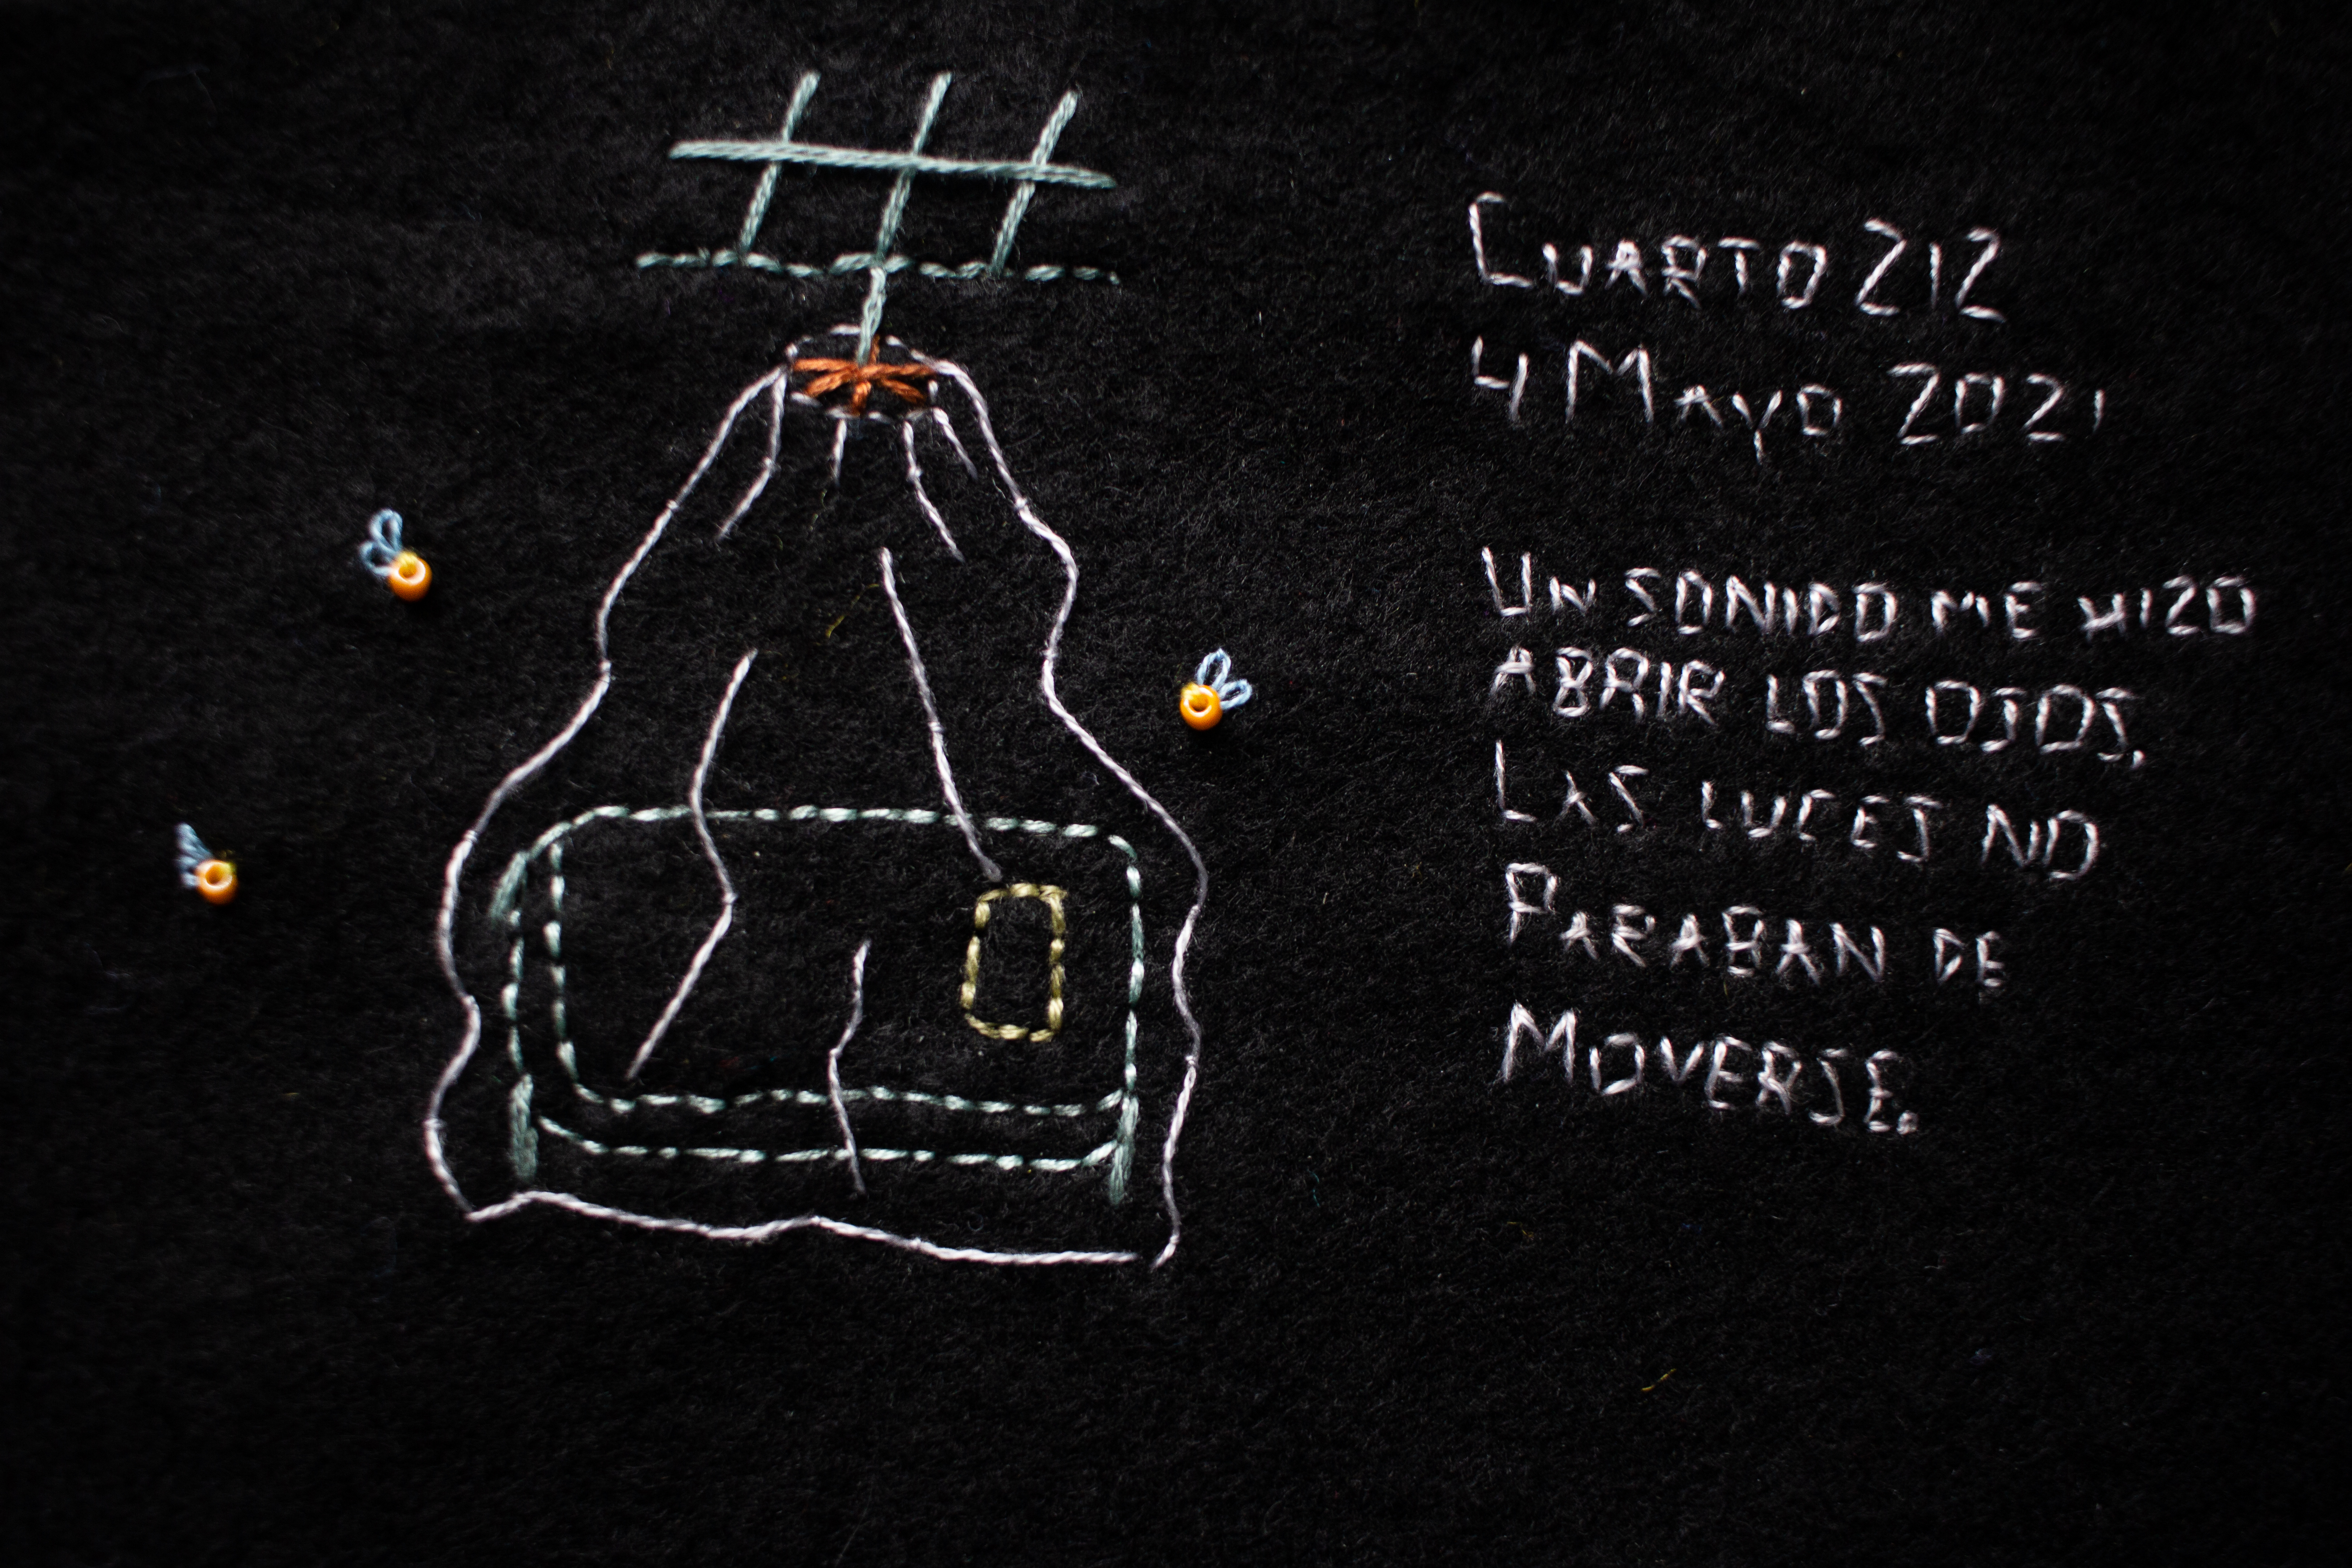 Cuarto 212
4 Mayo 2021
Un sonido me hizo
abrir los ojos.
Las luces no
Paraban de
Moverse.